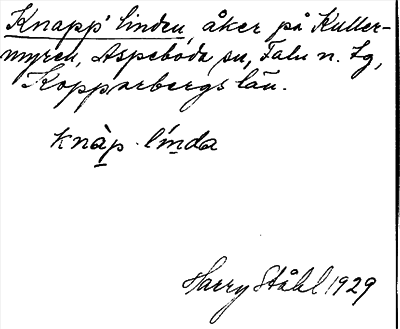 Knapp'linden, åker på Kuller-
myren, Aspeboda sn, Falu n. Lg,
Kopparbergs län.
knàp. línda
Harry Ståhl 1929